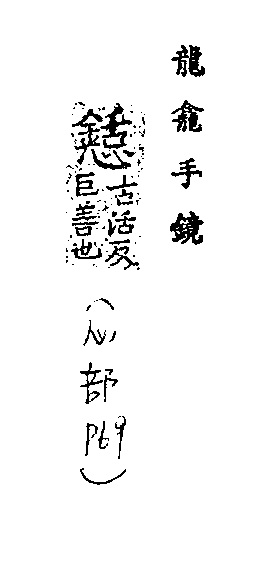 龍龕手鏡
古活反
巨善也
(心部 P69)